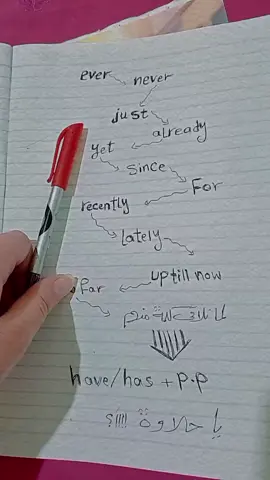 ever never
just
already
yet
since
For
recently
Lately
up till now
far
have/has + p.p
يا حلاوة !!!!؟